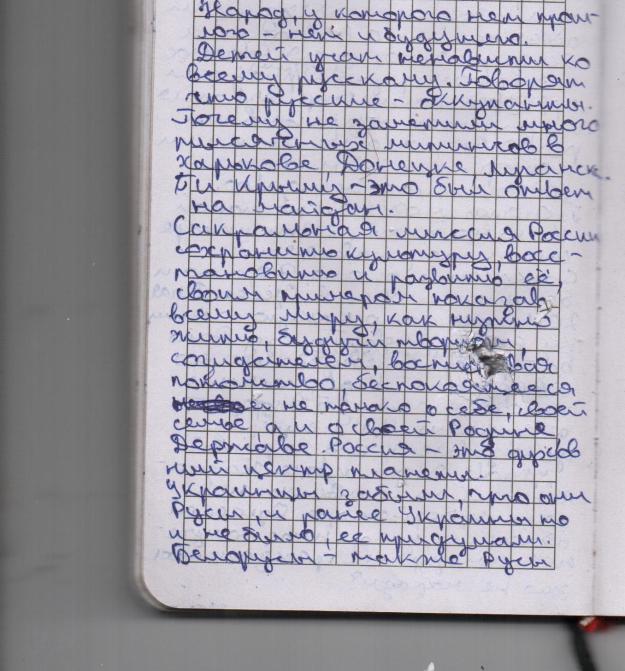 Народ, у которого нет прош-
лого - нет и будущего.
Детей учат ненависти ко
всему русскому. Говорят
что русские - оккупанты.
Почему не заметили много
тысячных митингов в
Харькове, Донецке, Луганск.
и Крыму - это был ответ
на майдан.
Сакральная миссия России
сохранить культуру, восс-
тановить и развить её,
своим примером показав
всему миру, как нужно
жить, будучи творцом,
созидателем,
потомство, беспокоящееся
не только о себе, своей
семье а и о своей Родине
Державе. Россия - это духов
ный центр планеты.
Украинцы забыли, что они
Русы, и ранее Украины то
и не было, её придумали.
Белорусы - также Русы